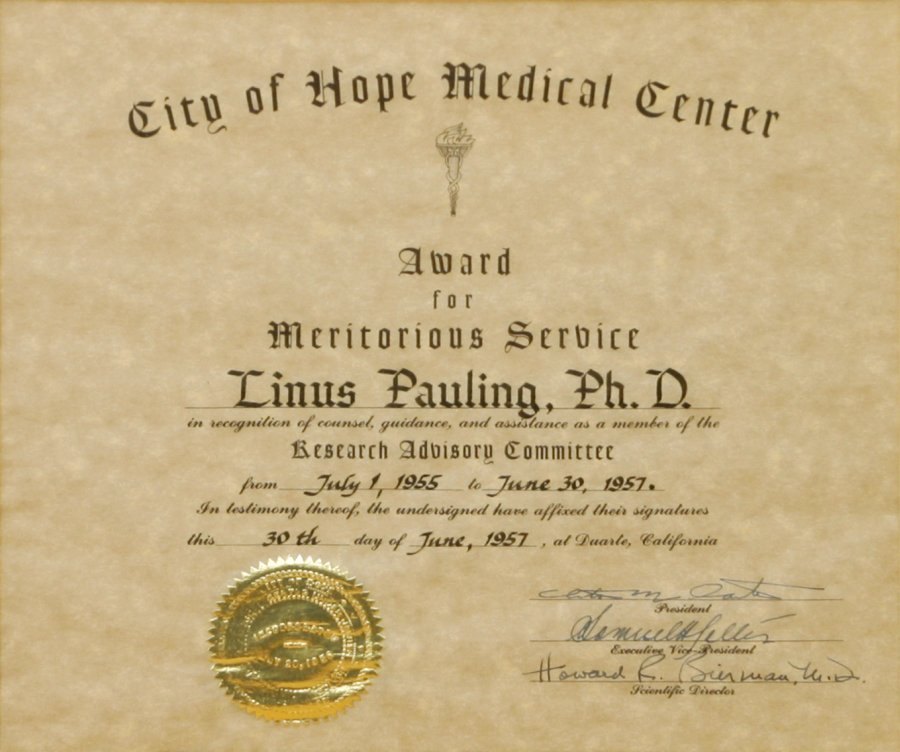 City of Hope Medical Center
Award
for
Meritorious Service
Linus Pauling, Ph.D.
in recognition of counsel, guidance, and assistance as a member of the
Research Advisory Committee
from July 1, 1955 to June 30, 1957.
In testimony thereof, the undersigned have affixed their signatures
this 30th day of June, 1957, at Duarte, California
President
Samuel H Golter
Executive Vice-President
Howard R. Bierman, M.D.
Scientific Director
INCORPORATED